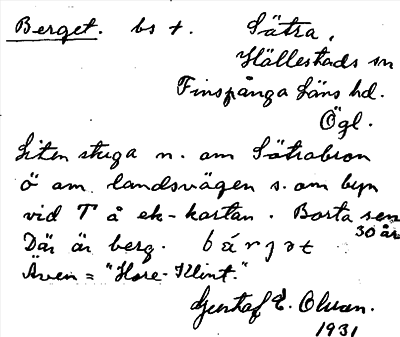 Berget. bs t. Sätra,
Hällestads sn
Finspånga läns hd.
Ögl.
Liten stuga n. om Sätrabron
ö om landsvägen s. om byn
vid T å ek-kartan. Borta sen
30 år
Där är berg.
Även = "Hore-Klint."
Gustaf E. Olsson.
1931